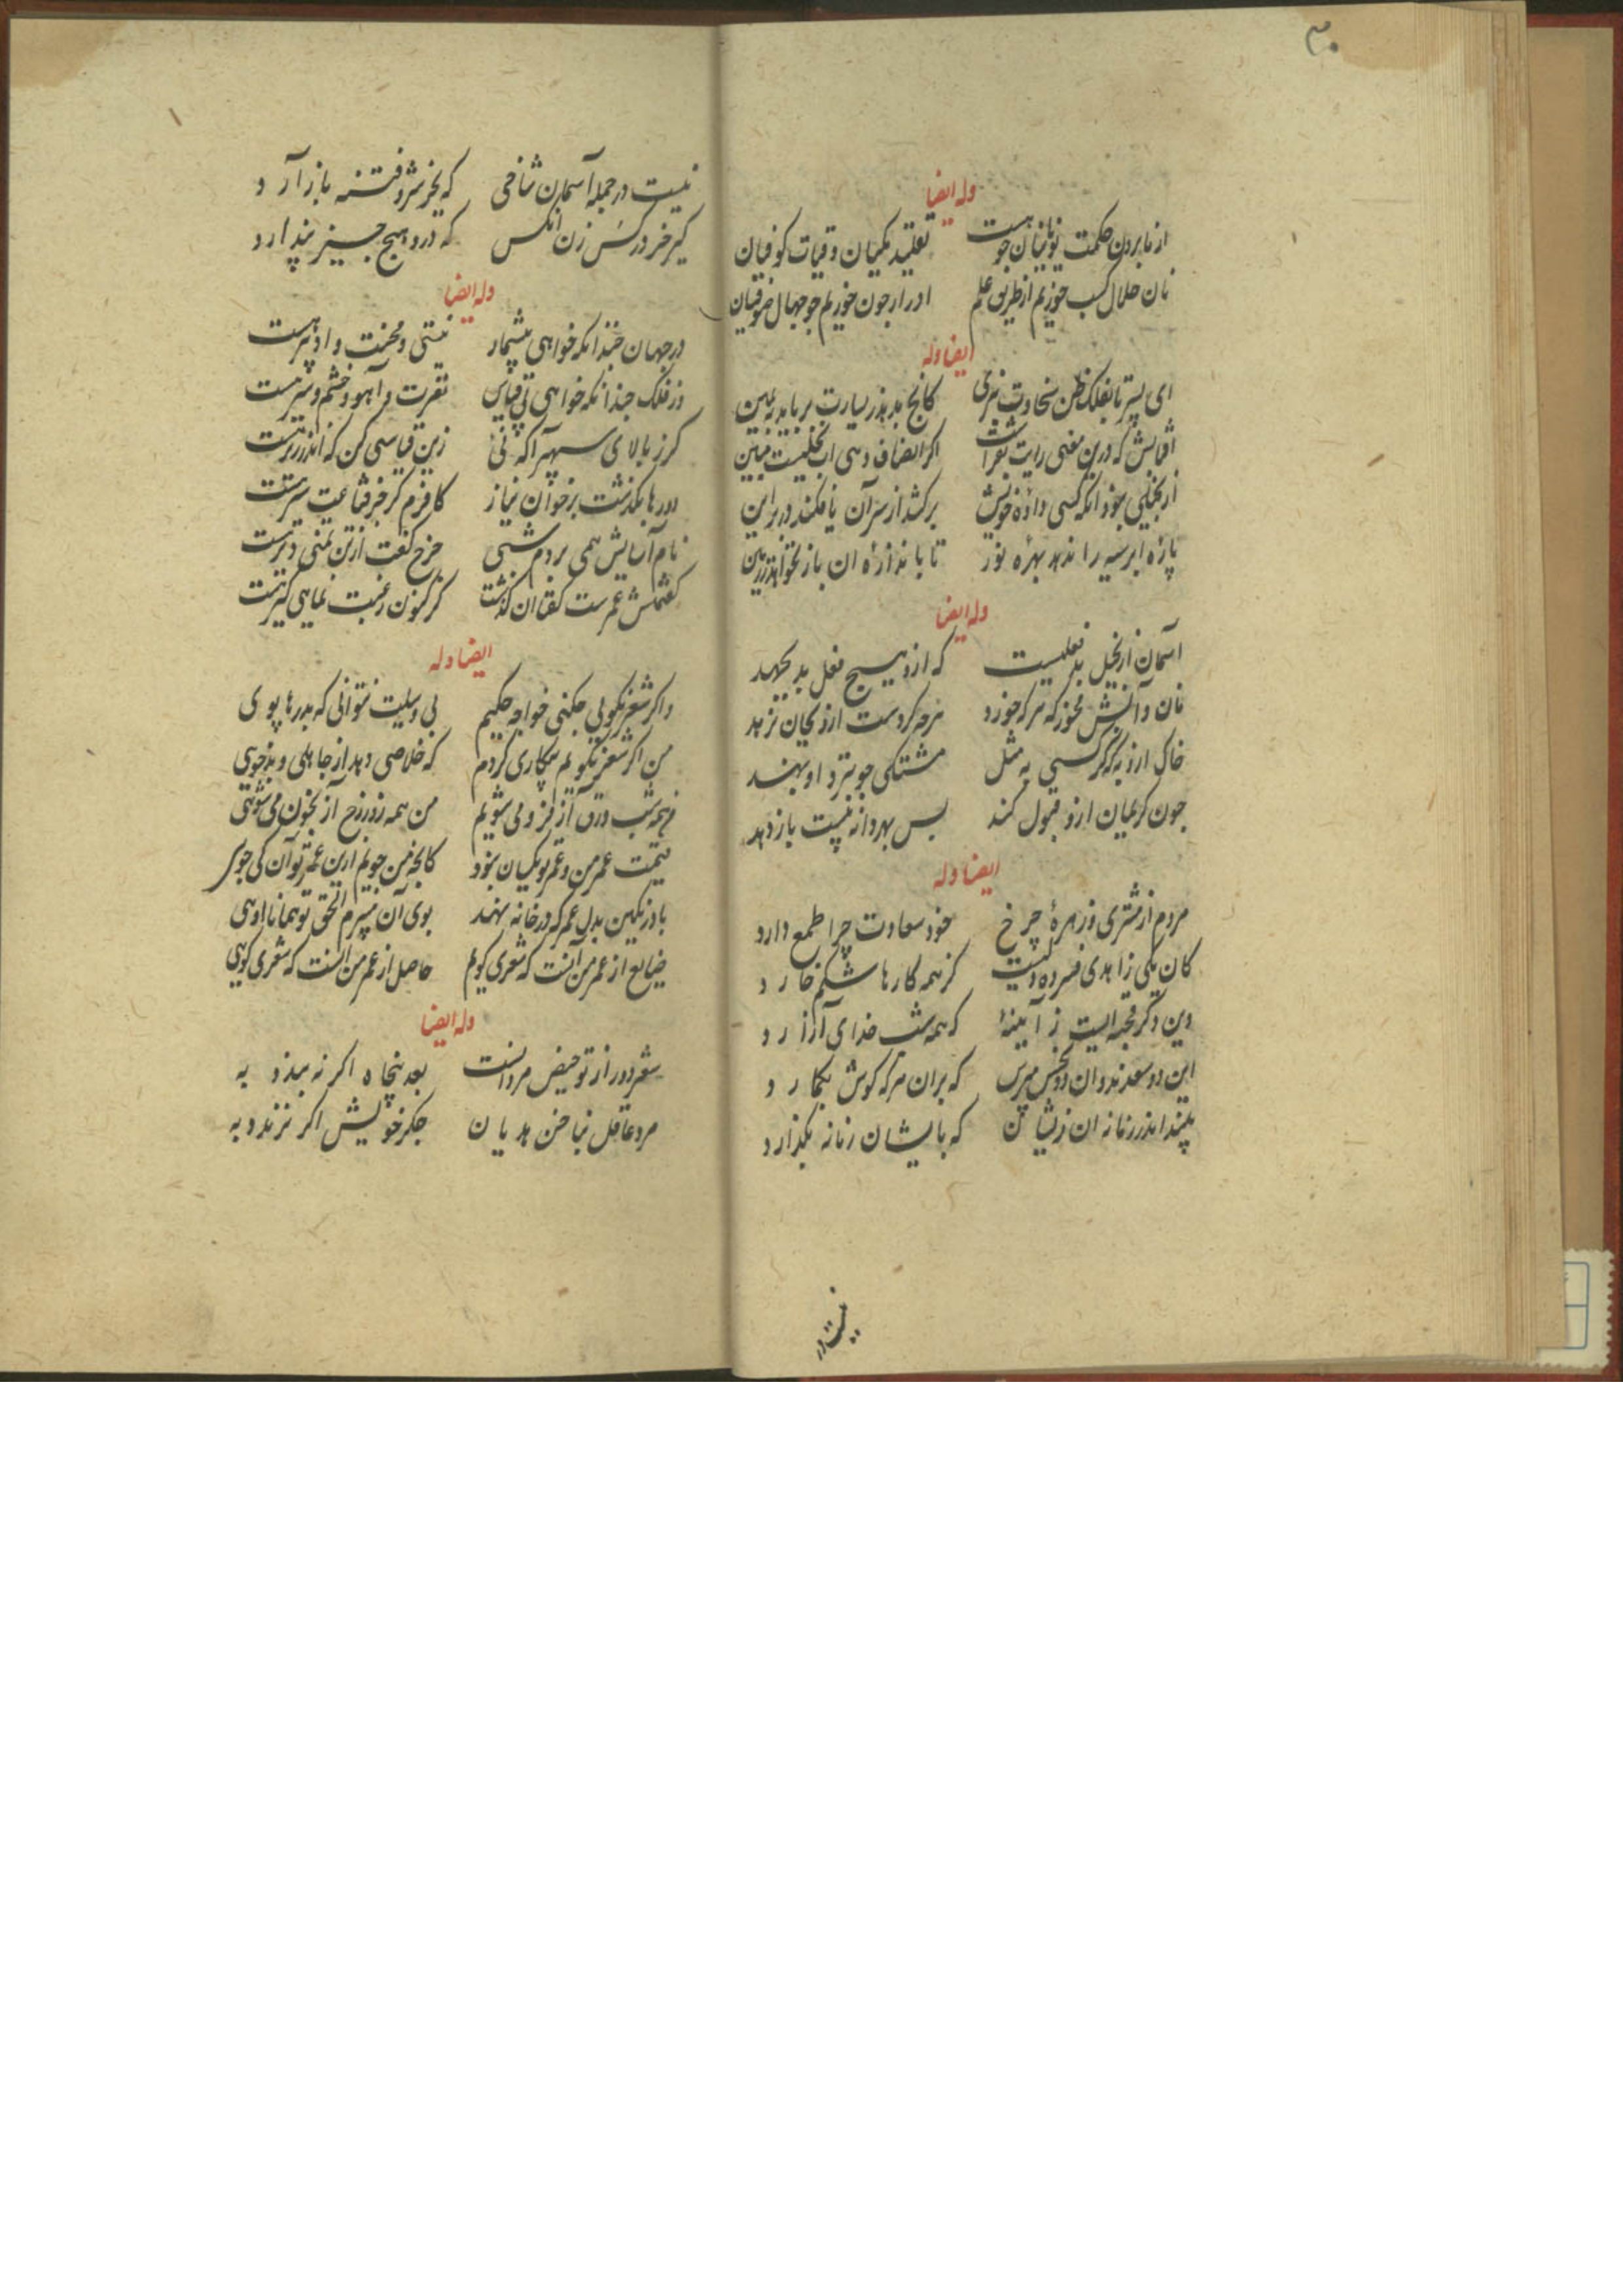 ۳۰
وله ایضا
از ما بردن حکمت یونانیان چو هست تقلید مکیان و قیات کوفیان
نان حلال کسب خوریم از طریق علم ادرار چون خوریم چو جهال صوفیان
ایضا وله
ای پسر تا بفلک ظن سخاوت نبری کانچ بدهد بیسارت برباید بیمین
اگر انصاف دهی اب بخلیست مبین
از بخیلی بود انکه کسی داده خویش برکشد از سر آن یا فکند در بر این
پاره ابر سیه را ندهد بهره نور تا باندازه ان باز نخواهد ز زمین
وله ایضا
اسمان از بخیل بد فعلیست که ازو هیچ فعل بد نجهد
نان و آبش مخور که هر که خورد هرچه کردست ازو بجان نرهد
خاک ازو به که گر کسی به مثل مشتکی جو بنزد او بنهد
چون کریمان ازو قبول کند پس بهر دانه بیست باز دهد
ایضا وله
مردم از مشتری و زهرهٔ چرخ خود سعادت چرا طمع دارد
کان یکی زاهدی فسرده و کیست کز همه کارها شکم خارد
وین دگر قحبه ایست ز آیینهٔ که همه شب خدای آزارد
این دو سعدند وان دو نحس مپرس که بران هر که گوش بگمارد
پند اندر زمانه ان ز نشان که بایشان زمانه بگذارد
نیست در
نیست در جمله آسمان شاخی که بجز شر و فتنه باز آرد
کیر خر در کس زن انکس که درو هیچ چیز پندارد
وله ایضا
در جهان چندانکه خواهی بیشمار نیستی و محنت و ادبار هست
وز فلک چندانکه خواهی بی قیاس نفرت و آهو و خشم و سر هست
کرز بالای سپهر آکه نی زین قیاسی کن که اندر زیر هست
دورها بگذشت بر خوان نیاز کافرم گر جز قناعت سیر هست
نام آسایش همی بردم شبی چرخ گفت ازین تمنی دیر هست
گفتمش عمرست گفتا ان گذشت گر کنون رغبت نمایی گیر هست
ایضا وله
و اگر شعر نگویی چکنی خواجه حکیم بی وسیلت نتوانی که بدرها پوی
من اگر شعر نگویم پی کاری گردم که خلاصی دهد از جاهلی و بدخویی
من همه شب ورق آز فرو می شویم من همه روز رخ آز بخون می شویی
قیمت عمر من و عمر تو یکسان نبود کانچه من جویم ازین عمر تو آن کی جوی
باد رنگین بدل عمر که در خانه نهند بوی آن میبرم الحق تو همانا اویی
ضایع از عمر من آنست که شعری گویم حاصل از عمر من انست که شعری گویی
وله ایضا
شعر دور از تو حیض مردانست بعد پنجاه اگر نه ببندد به
مرد عاقل بناخن هذیان جگر خویش اگر نرندد به